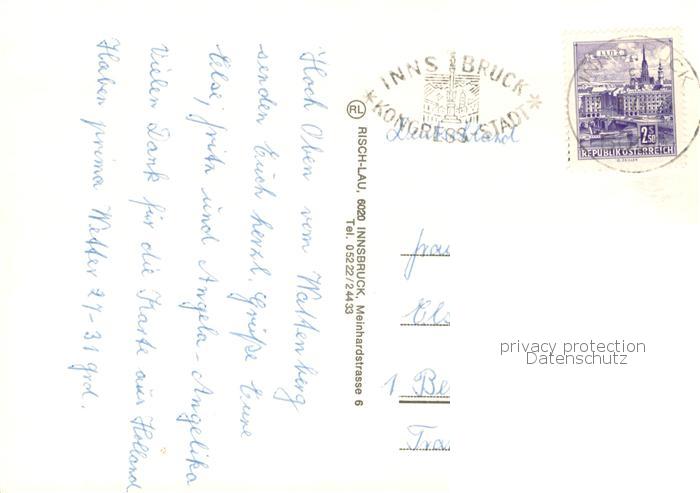 Hoch Oben vom Wattenberg
senden Euch herzl. Grüße Eure
Elsi, Fritz und Angela-Angelika
Vielen Dank für die Karte aus Holland
Haben prima Wetter 27-31 grd.
RL RISCH-LAU, 6020 INNSBRUCK, Meinhardstrasse 6
Tel. 05222/24433
INNSBRUCK
KONGRESS STADT
LINZ
2S50
REPUBLIK ÖSTERREICH
Deutschland
Frau
Els
1 Be
privacy protection
Datenschutz